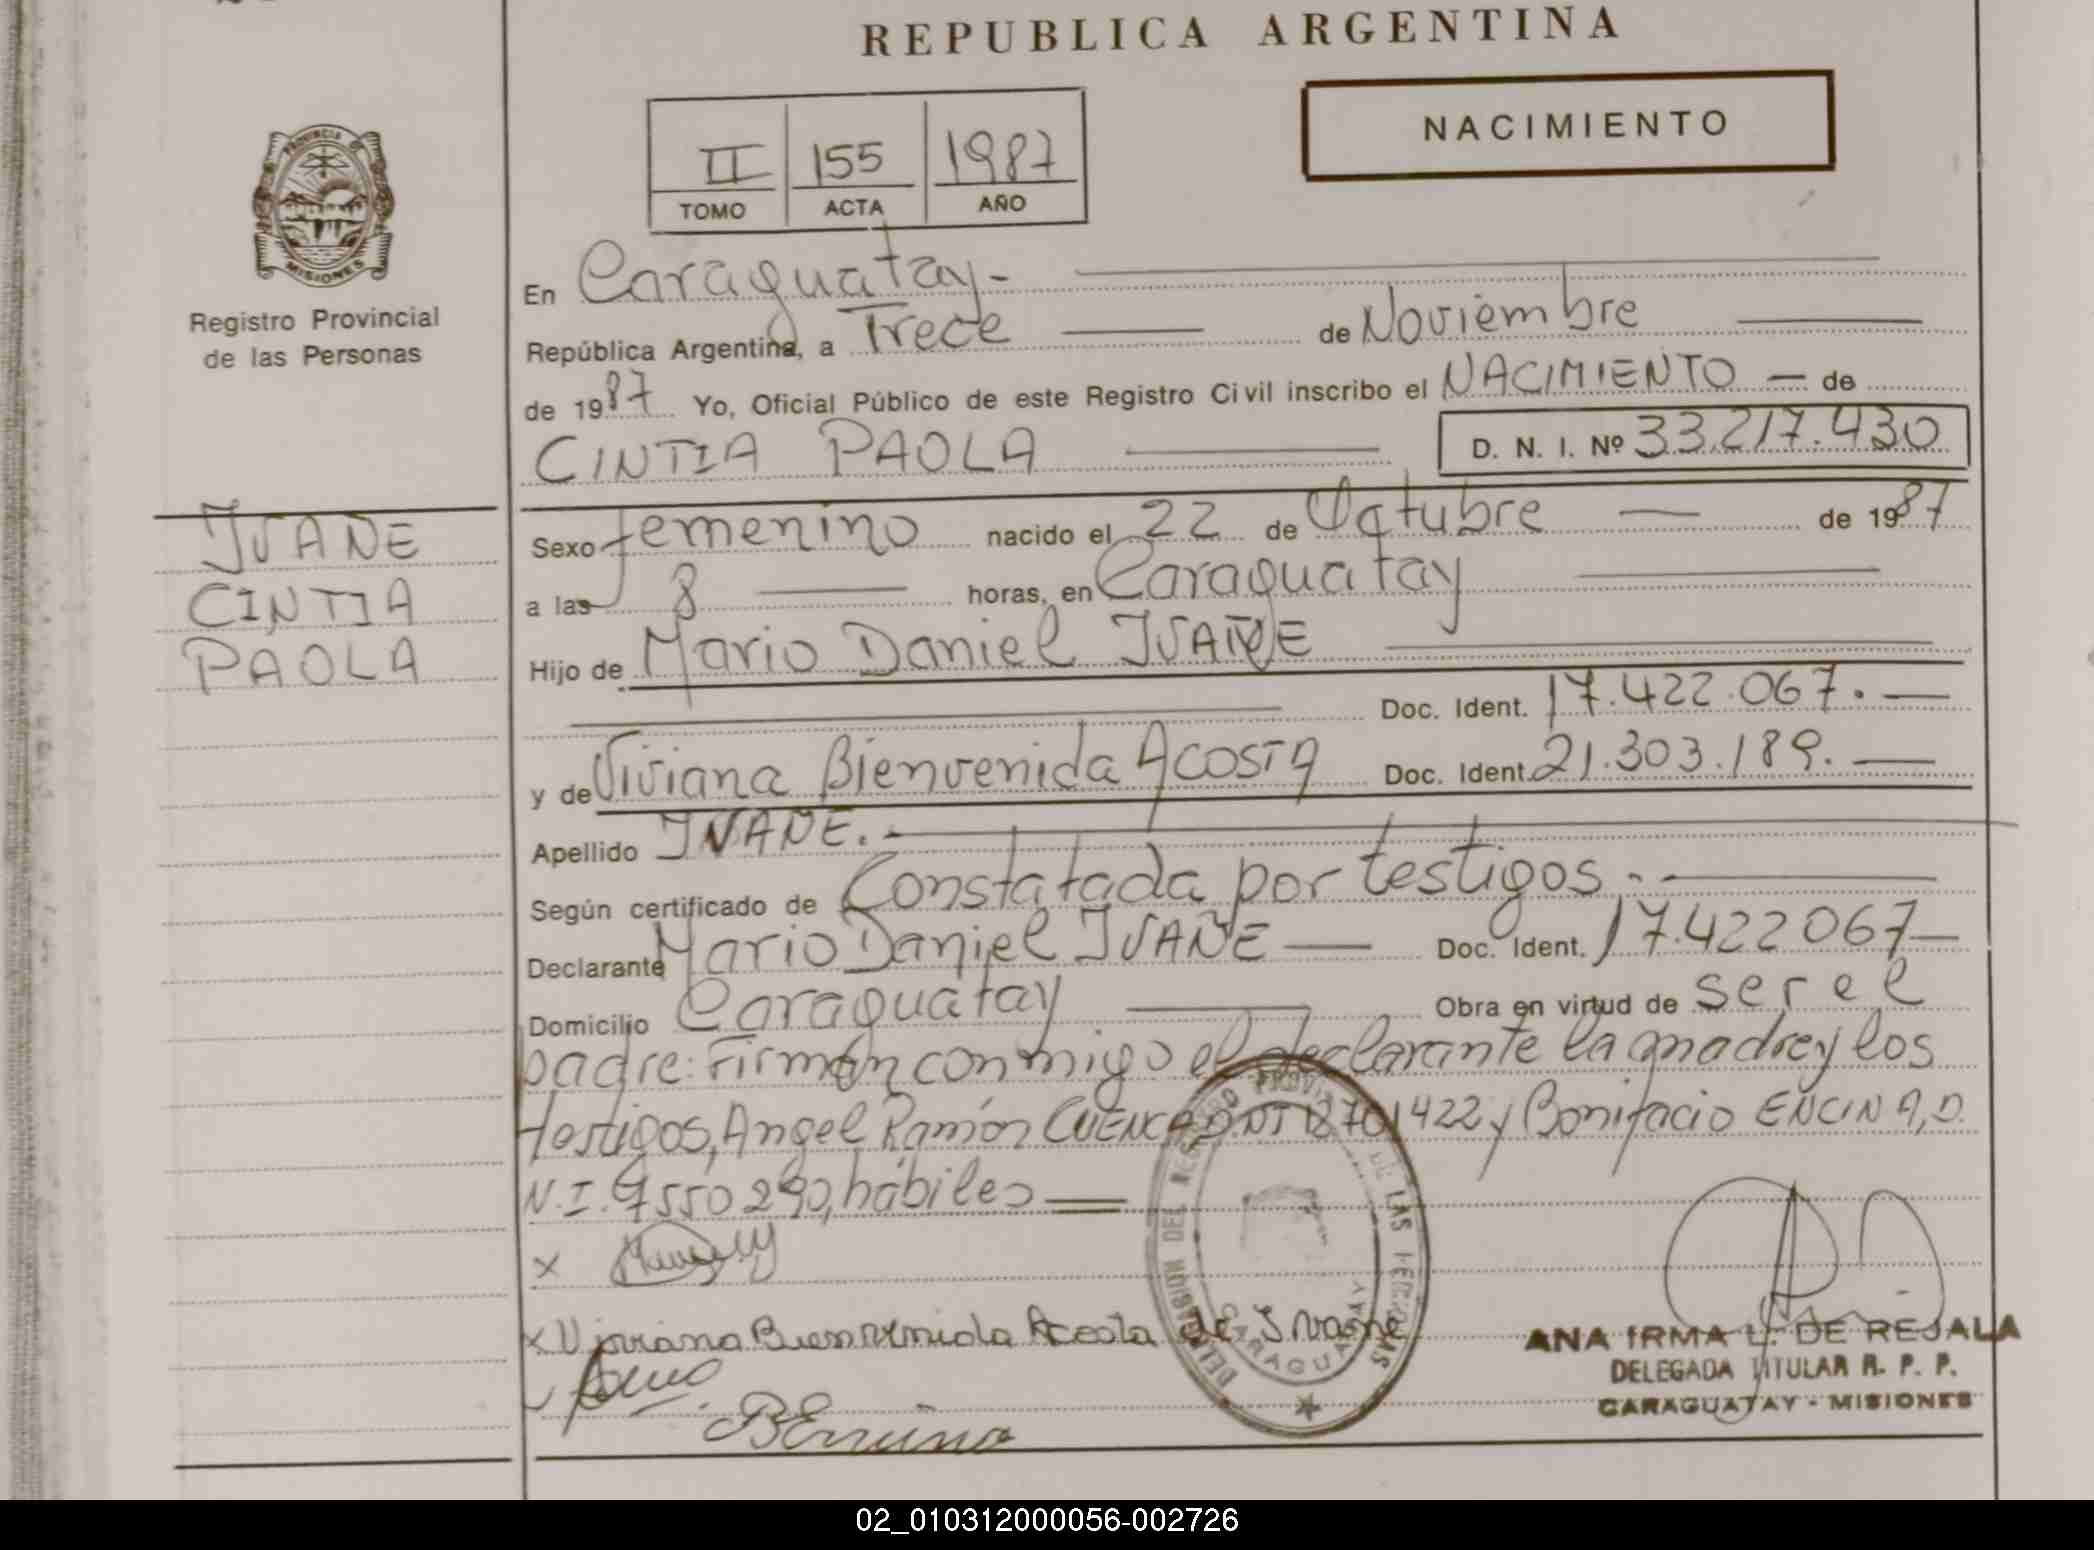 REPUBLICA ARGENTINA
NACIMIENTO
II 155 1987
TOMO ACTA AÑO
PROVINCIA
MISIONES
Registro Provincial
de las Personas
En Caraguatay-
República Argentina, a Trece de Noviembre
de 1987 Yo, Oficial Público de este Registro Civil inscribo el NACIMIENTO — de
CINTIA PAOLA D. N. I. Nº 33.217.430
IVAÑE
CINTIA
PAOLA
Sexo femenino nacido el 22 de Octubre de 1987
a las 8 horas, en Caraguatay
Hijo de Mario Daniel IVAÑE
Doc. Ident. 17.422.067.
y de Viviana Bienvenida ACOSTA Doc. Ident. 21.303.189.
Apellido IVAÑE.
Según certificado de Constatada por testigos.
Declarante Mario Daniel IVAÑE Doc. Ident. 17.422 067
Domicilio Caraguatay Obra en virtud de ser el
padre: Firman conmigo el declarante la madre y los
testigos, Angel Ramón CUENCA D.N.I 8701422 y Bonifacio ENCINA, D.
N.I. 7550290, hábiles
x
x Viviana Bienvenida Acosta de Ivañe
BEncina
DELEGACION DEL REGISTRO PROVINCIAL DE LAS PERSONAS
CARAGUATAY
ANA IRMA L. DE REJALA
DELEGADA TITULAR R. P. P.
CARAGUATAY - MISIONES
02_010312000056-002726